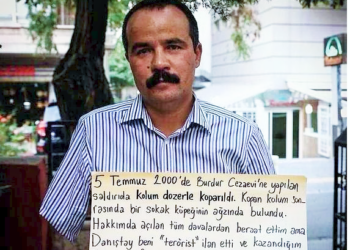 5 Temmuz 2000'de Burdur Cezaevi'ne yapılan
saldırıda kolum dozerle koparıldı. Kopan kolum son-
rasında bir sokak köpeğinin ağzında bulundu.
Hakkımda açılan tüm davalardan beraat ettim ama
Danıştay beni "terörist" ilan etti ve kazandığım